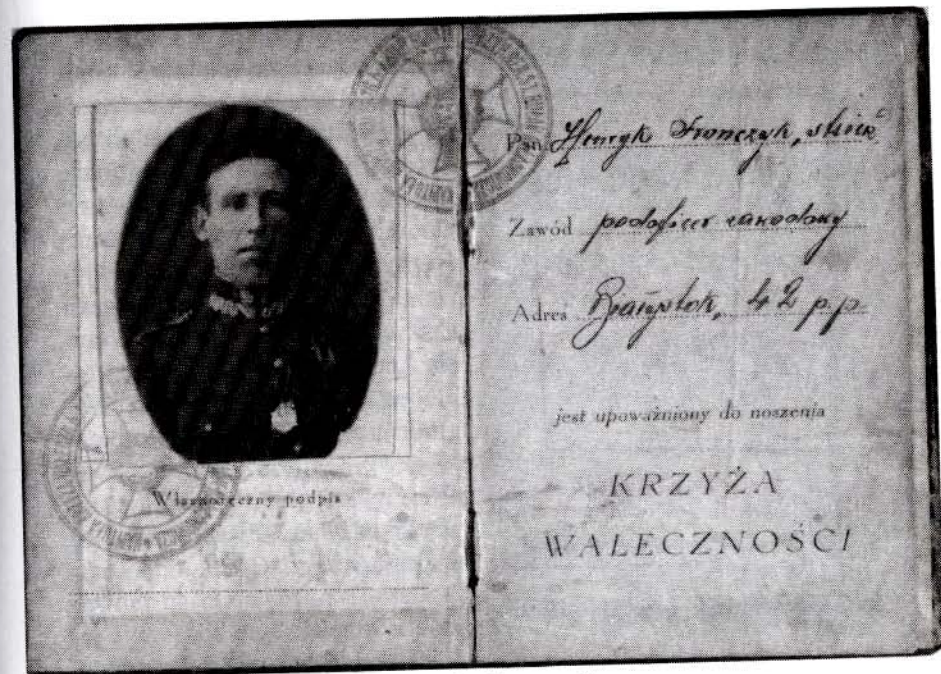 Własnoręczny podpis
Pan Henryk Fronczyk,
Zawód podoficer zawodowy
Adres Białystok, 42 p.p.
jest upoważniony do noszenia
KRZYŻA
WALECZNOŚCI